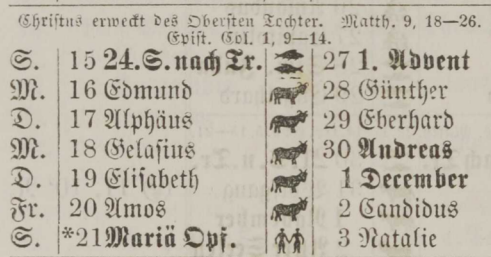 Christus erweckt des Obersten Tochter. Matth. 9, 18—26.
Epist. Col. 1, 9—14.
S. 15 24. S. nach Tr. 27 1. Advent
M. 16 Edmund 28 Günther
D. 17 Alphäus 29 Eberhard
M. 18 Gelasius 30 Andreas
D. 19 Elisabeth 1 December
Fr. 20 Amos 2 Candidus
S. *21 Mariä Opf. 3 Natalie